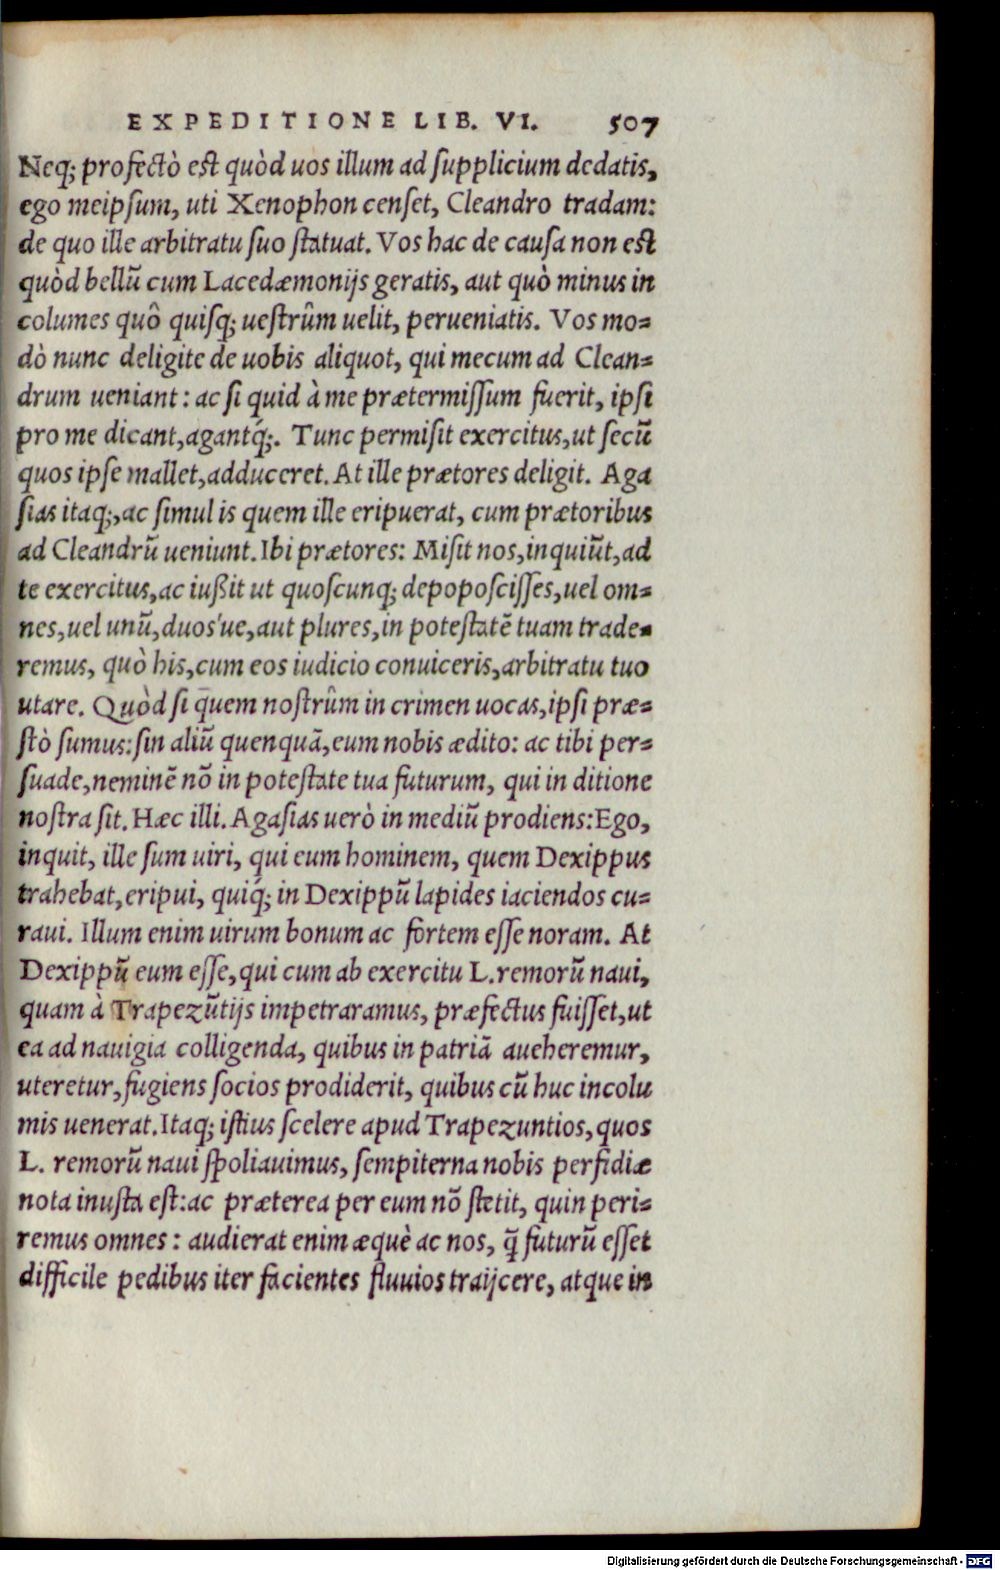 EXPEDITIONE LIB. VI. 507
Neq; profectò est quòd uos illum ad supplicium dedatis,
ego meipsum, uti Xenophon censet, Cleandro tradam:
de quo ille arbitratu suo statuat. Vos hac de causa non est
quòd bellũ cum Lacedæmonijs geratis, aut quò minus in
columes quô quisq; uestrûm uelit, perueniatis. Vos mo=
dò nunc deligite de uobis aliquot, qui mecum ad Clean=
drum ueniant: ac si quid à me prætermissum fuerit, ipsi
pro me dicant, agantq́;. Tunc permisit exercitus, ut secũ
quos ipse mallet, adduceret. At ille prætores deligit. Aga
sias itaq;, ac simul is quem ille eripuerat, cum prætoribus
ad Cleandrũ ueniunt. Ibi prætores: Misit nos, inquiũt, ad
te exercitus, ac iußit ut quoscunq; depoposcisses, uel om=
nes, uel unũ, duos'ue, aut plures, in potestatẽ tuam trade=
remus, quò his, cum eos iudicio conuiceris, arbitratu tuo
utare. Quòd si q̄uem nostrûm in crimen uocas, ipsi præ=
stò sumus: sin aliũ quenquã, eum nobis ædito: ac tibi per=
suade, neminẽ nõ in potestate tua futurum, qui in ditione
nostra sit. Hæc illi. Agasias uerò in mediũ prodiens: Ego,
inquit, ille sum uiri, qui eum hominem, quem Dexippus
trahebat, eripui, quiq́; in Dexippũ lapides iaciendos cu=
raui. Illum enim uirum bonum ac fortem esse noram. At
Dexippũ eum esse, qui cum ab exercitu L. remorũ naui,
quam à Trapezũtijs impetraramus, præfectus fuisset, ut
ea ad nauigia colligenda, quibus in patriã aueheremur,
uteretur, fugiens socios prodiderit, quibus cũ huc incolu
mis uenerat. Itaq; istius scelere apud Trapezuntios, quos
L. remorũ naui spoliauimus, sempiterna nobis perfidiæ
nota inusta est: ac præterea per eum nõ stetit, quin peri=
remus omnes: audierat enim æquè ac nos, q̃ futurũ esset
difficile pedibus iter facientes fluuios traijcere, atque in
Digitalisierung gefördert durch die Deutsche Forschungsgemeinschaft - DFG